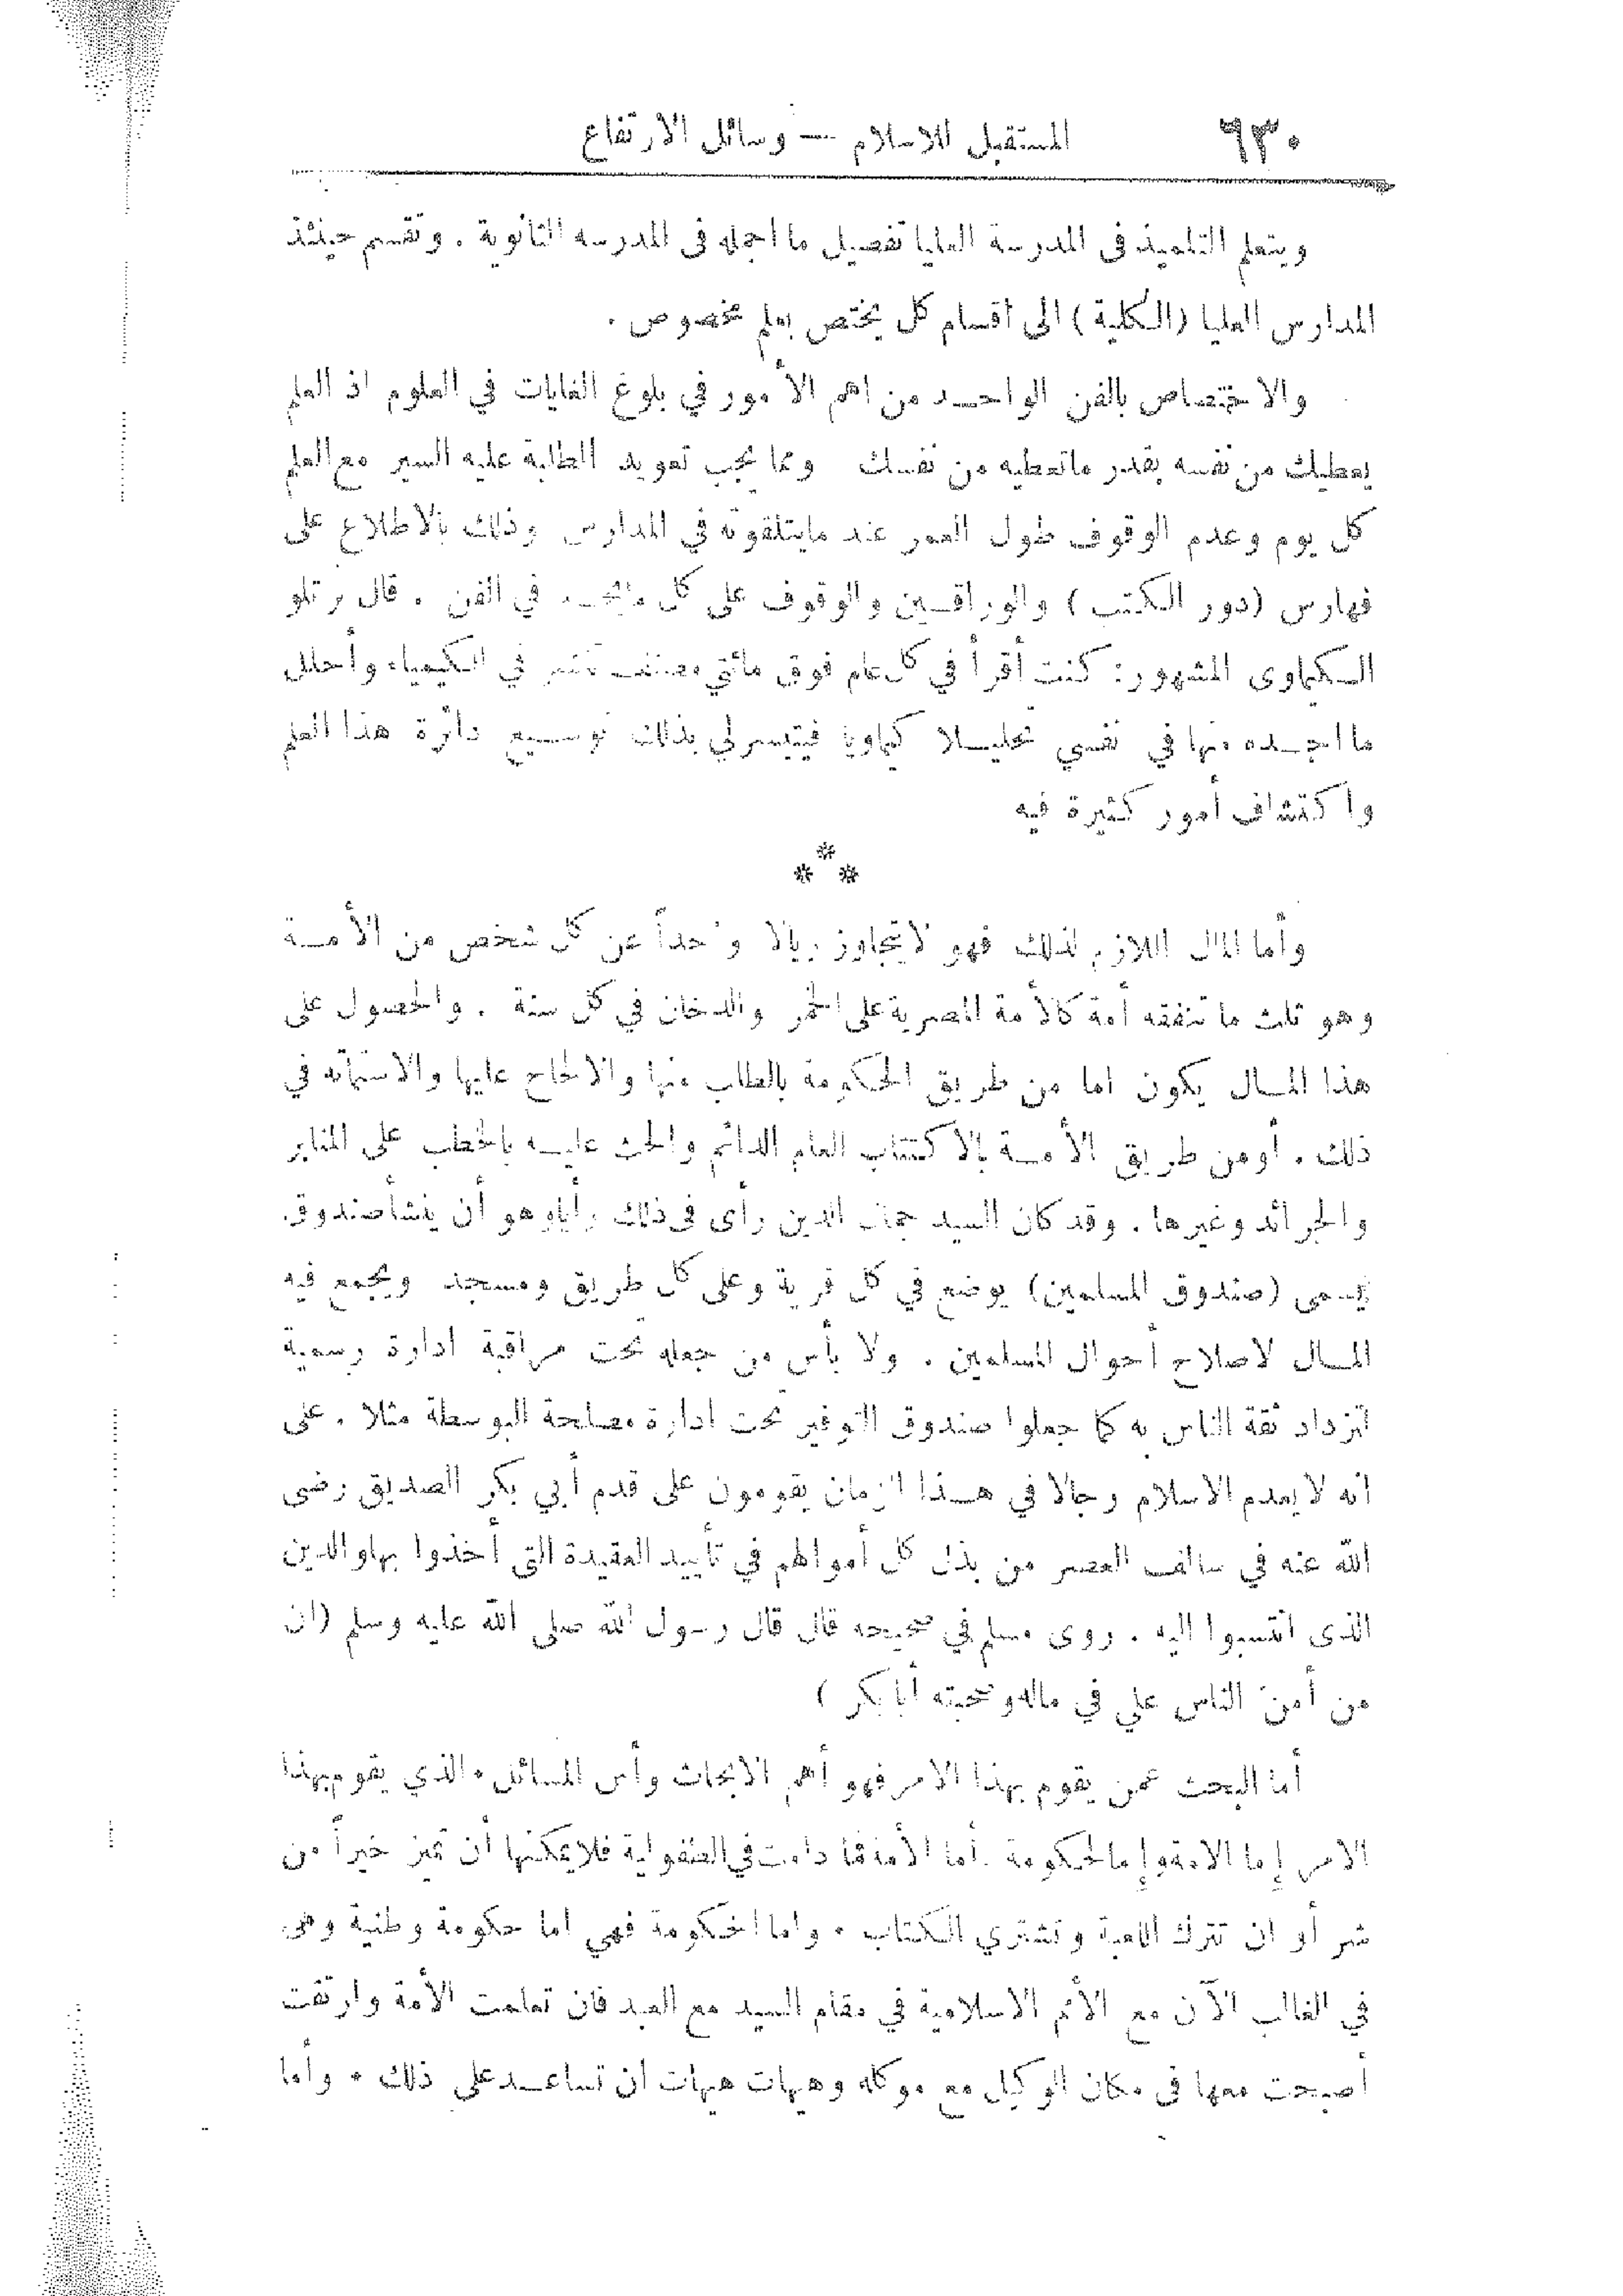 ٦٣٠ المستقبل للاسلام — وسائل الارتفاع
ويتعلم التلميذ فى المدرسة العليا تفصيل ما اجمله فى المدرسه الثانوية . وتقسم حينئذ
المدارس العليا (الكلية) الى اقسام كل يختص بعلم مخصوص .
والاختصاص بالفن الواحد من اهم الأمور في بلوغ الغايات في العلوم اذ العلم
يعطيك من نفسه بقدر ماتعطيه من نفسك ومما يجب تعويد الطلبة عليه السير مع العلم
كل يوم وعدم الوقوف طول العمر عند مايتلقونه في المدارس وذلك بالاطلاع على
فهارس (دور الكتب) والوراقين والوقوف على كل مايجد في الفن . قال برتلو
الكيماوى المشهور: كنت أقرأ في كل عام فوق مائتي مصنف تنشر في الكيمياء وأحلل
ما اجده منها في نفسي تحليلا كيماويا فيتيسر لي بذلك توسيع دائرة هذا العلم
واكتشاف أمور كثيرة فيه
***
وأما المال اللازم لذلك فهو لايتجاوز ريالا واحداً عن كل شخص من الأمة
وهو ثلث ما تنفقه أمة كالأمة المصرية على الخمر والدخان في كل سنة . والحصول على
هذا المال يكون اما من طريق الحكومة بالطلب منها والالحاح عليها والاستماته في
ذلك . أومن طريق الأمة بالاكتتاب العام الدائم والحث عليه بالخطب على المنابر
والجرائد وغيرها . وقد كان السيد جمال الدين رأى فى ذلك رأياوهو أن ينشأصندوق
يسمى (صندوق المسلمين) يوضع في كل قرية وعلى كل طريق ومسجد ويجمع فيه
المال لاصلاح أحوال المسلمين . ولا بأس من جعله تحت مراقبة ادارة رسمية
لتزداد ثقة الناس به كما جعلوا صندوق التوفير تحت ادارة مصلحة البوسطة مثلا . على
انه لايعدم الاسلام رجالا في هذا الزمان يقومون على قدم أبي بكر الصديق رضى
الله عنه في سالف العصر من بذل كل أموالهم في تأييد العقيدة التى أخذوا بهاوالدين
الذى انتسبوا اليه . روى مسلم في صحيحه قال قال رسول الله صلى الله عليه وسلم (ان
من أمنّ الناس علي في ماله وصحبته أبابكر)
أما البحث عمن يقوم بهذا الامر فهو أهم الابحاث وأس المسائل . الذي يقوم بهذا
الامر إما الامةوإما الحكومة . أما الأمةفما دامت في الطفولية فلايمكنها أن تميز خيراً من
شر أو ان تترك اللعبة وتشتري الكتاب . واما الحكومة فهي اما حكومة وطنية وهى
في الغالب الآن مع الأمم الاسلامية في مقام السيد مع العبد فان تعلمت الأمة وارتقت
أصبحت معها فى مكان الوكيل مع موكله وهيهات هيهات ان تساعد على ذلك . وأما